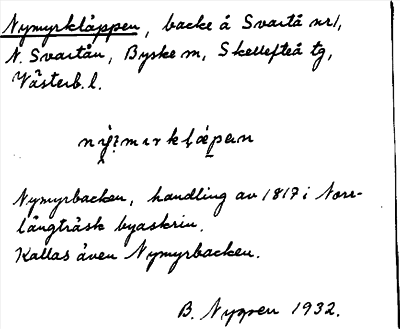 Nymyrkläppen, backe å Svartå nr 1,
N. Svartån, Byske sn, Skellefteå tg,
Västerb. l.
Nymyrbacken, handling av 1817 i Norr-
långträsk byaskrin.
Kallas även Nymyrbacken.
B. Nygren 1932.